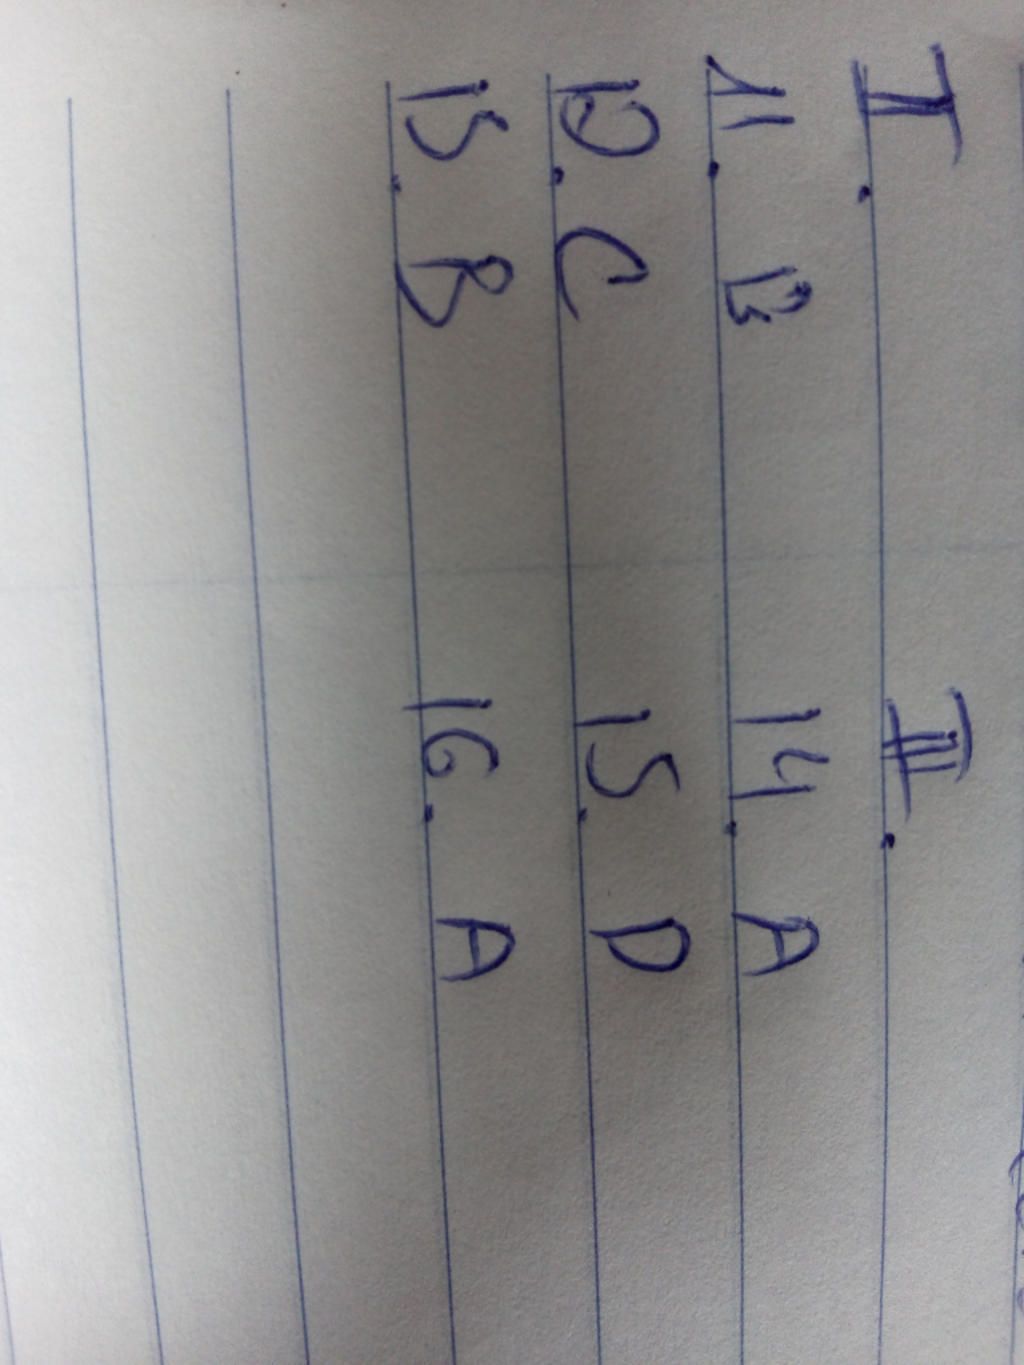 II. III.
11. B 14. A
12. C 15. D
13. B 16. A